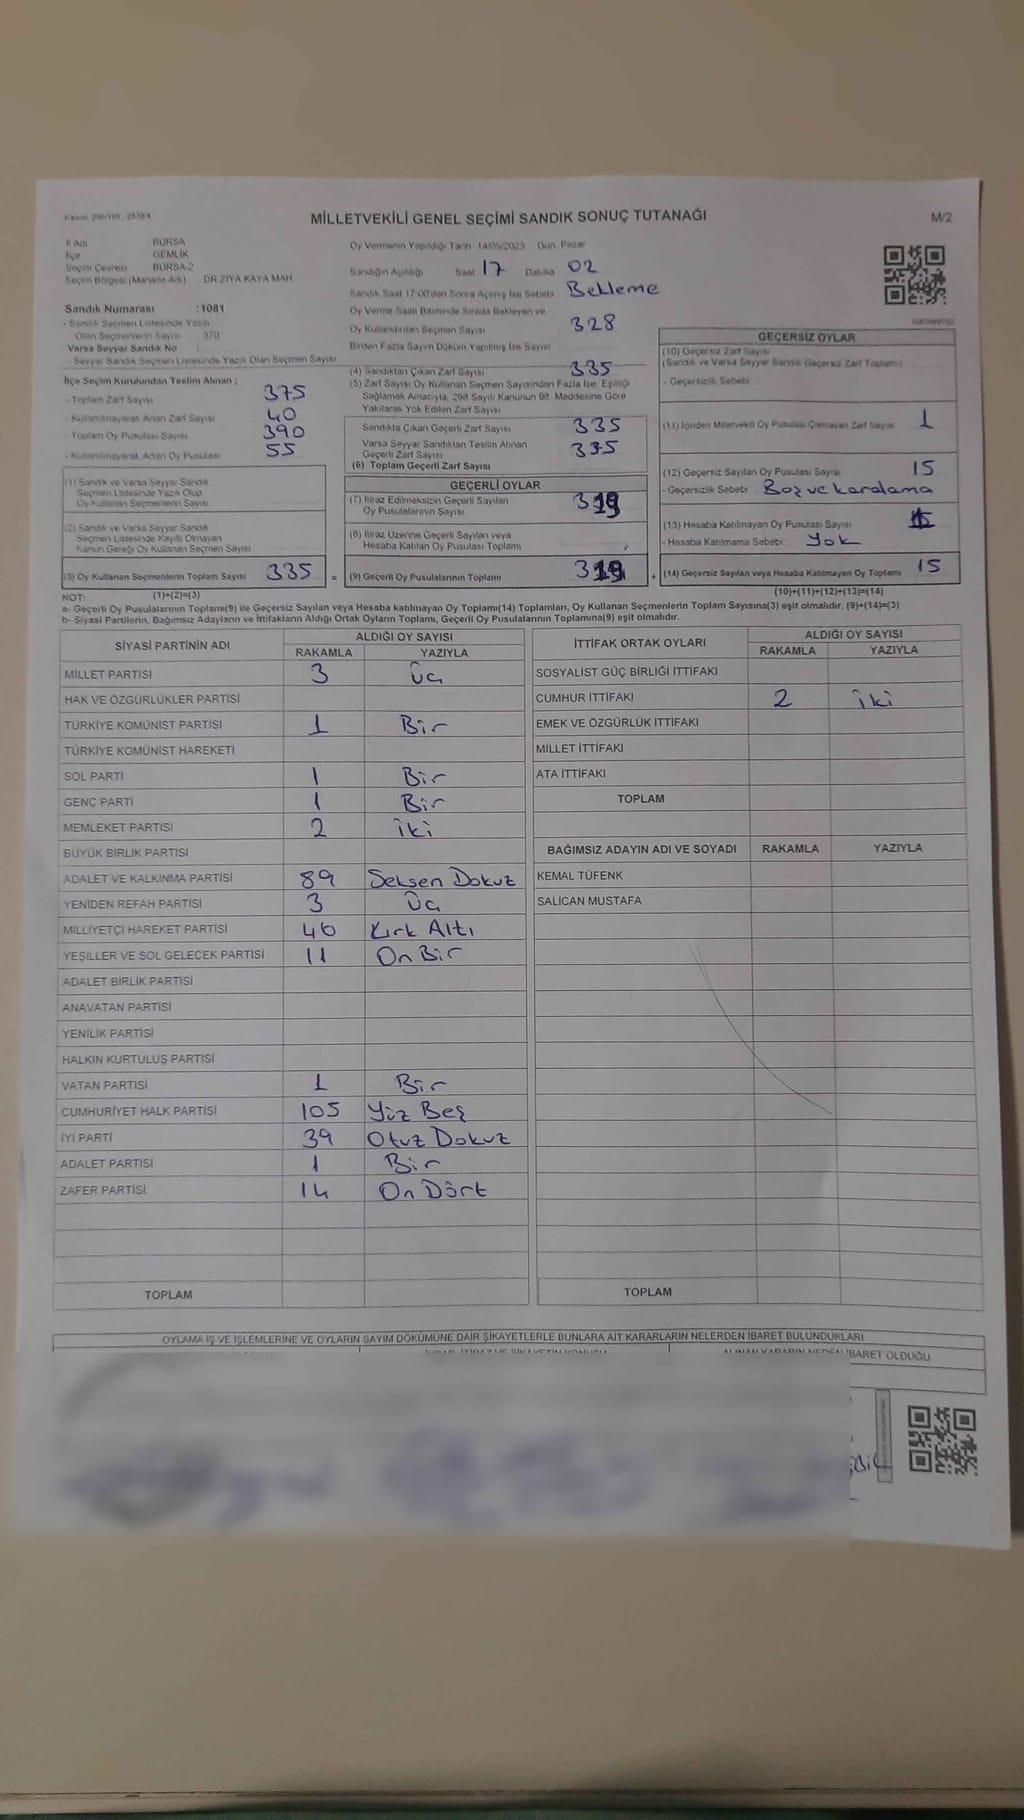 MİLLETVEKİLİ GENEL SEÇİMİ SANDIK SONUÇ TUTANAĞI
M/2
İl Adı BURSA
İlçe GEMLİK
Seçim Çevresi BURSA-2
Seçim Bölgesi (Mahalle Adı) DR.ZİYA KAYA MAH
Sandık Numarası :1081
- Sandık Seçmen Listesinde Yazılı
Olan Seçmenlerin Sayısı 370
Varsa Seyyar Sandık No :
- Seyyar Sandık Seçmen Listesinde Yazılı Olan Seçmen Sayısı
İlçe Seçim Kurulundan Teslim Alınan ;
- Toplam Zarf Sayısı 375
- Kullanılmayarak Artan Zarf Sayısı 40
- Toplam Oy Pusulası Sayısı 390
- Kullanılmayarak Artan Oy Pusulası 55
(1) Sandık ve Varsa Seyyar Sandık
Seçmen Listesinde Yazılı Olup
Oy Kullanan Seçmenlerin Sayısı
(2) Sandık ve Varsa Seyyar Sandık
Seçmen Listesinde Kayıtlı Olmayan
Kanun Gereği Oy Kullanan Seçmen Sayısı
(3) Oy Kullanan Seçmenlerin Toplam Sayısı 335 =
Oy Vermenin Yapıldığı Tarih : 14/05/2023 Gün: Pazar
Sandığın Açıldığı Saat 17 Dakika 02
Sandık Saat 17:00'den Sonra Açılmış İse Sebebi Bekleme
Oy Verme Saati Bitiminde Sırada Bekleyen ve
Oy Kullandırılan Seçmen Sayısı 328
Birden Fazla Sayım Döküm Yapılmış İse Sayısı
(4) Sandıktan Çıkan Zarf Sayısı 335
(5) Zarf Sayısı Oy Kullanan Seçmen Sayısından Fazla İse, Eşitliği
Sağlamak Amacıyla, 298 Sayılı Kanunun 98. Maddesine Göre
Yakılarak Yok Edilen Zarf Sayısı
Sandıkta Çıkan Geçerli Zarf Sayısı 335
Varsa Seyyar Sandıktan Teslim Alınan
Geçerli Zarf Sayısı 335
(6) Toplam Geçerli Zarf Sayısı
GEÇERLİ OYLAR
(7) İtiraz Edilmeksizin Geçerli Sayılan
Oy Pusulalarının Sayısı 319
(8) İtiraz Üzerine Geçerli Sayılan veya
Hesaba Katılan Oy Pusulası Toplamı
(9) Geçerli Oy Pusulalarının Toplamı 319 +
GEÇERSİZ OYLAR
(10) Geçersiz Zarf Sayısı
(Sandık ve Varsa Seyyar Sandık Geçersiz Zarf Toplamı)
- Geçersizlik Sebebi :
(11) İçinden Milletvekili Oy Pusulası Çıkmayan Zarf Sayısı 1
(12) Geçersiz Sayılan Oy Pusulası Sayısı 15
- Geçersizlik Sebebi : Boş ve karalama
(13) Hesaba Katılmayan Oy Pusulası Sayısı
- Hesaba Katılmama Sebebi : Yok
(14) Geçersiz Sayılan veya Hesaba Katılmayan Oy Toplamı 15
NOT: (1)+(2)=(3) (10)+(11)+(12)+(13)=(14)
a- Geçerli Oy Pusulalarının Toplamı(9) ile Geçersiz Sayılan veya Hesaba katılmayan Oy Toplamı(14) Toplamları, Oy Kullanan Seçmenlerin Toplam Sayısına(3) eşit olmalıdır. (9)+(14)=(3)
b- Siyasi Partilerin, Bağımsız Adayların ve İttifakların Aldığı Ortak Oyların Toplamı, Geçerli Oy Pusulalarının Toplamına(9) eşit olmalıdır.
SİYASİ PARTİNİN ADI ALDIĞI OY SAYISI
RAKAMLA YAZIYLA
MİLLET PARTİSİ 3 Üç
HAK VE ÖZGÜRLÜKLER PARTİSİ
TÜRKİYE KOMÜNİST PARTİSİ 1 Bir
TÜRKİYE KOMÜNİST HAREKETİ
SOL PARTİ 1 Bir
GENÇ PARTİ 1 Bir
MEMLEKET PARTİSİ 2 iki
BÜYÜK BİRLİK PARTİSİ
ADALET VE KALKINMA PARTİSİ 89 Seksen Dokuz
YENİDEN REFAH PARTİSİ 3 Üç
MİLLİYETÇİ HAREKET PARTİSİ 46 Kırk Altı
YEŞİLLER VE SOL GELECEK PARTİSİ 11 On Bir
ADALET BİRLİK PARTİSİ
ANAVATAN PARTİSİ
YENİLİK PARTİSİ
HALKIN KURTULUŞ PARTİSİ
VATAN PARTİSİ 1 Bir
CUMHURİYET HALK PARTİSİ 105 Yüz Beş
İYİ PARTİ 39 Otuz Dokuz
ADALET PARTİSİ 1 Bir
ZAFER PARTİSİ 14 On Dört
TOPLAM
İTTİFAK ORTAK OYLARI ALDIĞI OY SAYISI
RAKAMLA YAZIYLA
SOSYALİST GÜÇ BİRLİĞİ İTTİFAKI
CUMHUR İTTİFAKI 2 iki
EMEK VE ÖZGÜRLÜK İTTİFAKI
MİLLET İTTİFAKI
ATA İTTİFAKI
TOPLAM
BAĞIMSIZ ADAYIN ADI VE SOYADI RAKAMLA YAZIYLA
KEMAL TÜFENK
SALİCAN MUSTAFA
TOPLAM
OYLAMA İŞ VE İŞLEMLERİNE VE OYLARIN SAYIM DÖKÜMÜNE DAİR ŞİKAYETLERLE BUNLARA AİT KARARLARIN NELERDEN İBARET BULUNDUKLARI
İBARET OLDUĞU